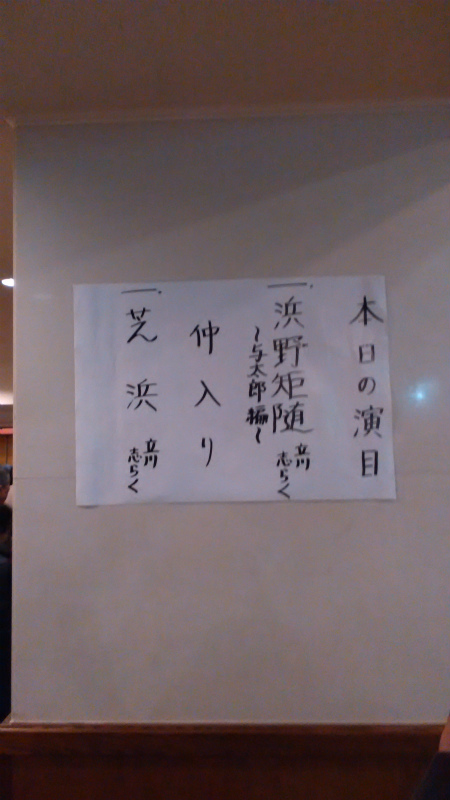 本日の演目
一、浜野矩随 立川志らく
〜与太郎編〜
仲入り
一、芝浜 立川志らく